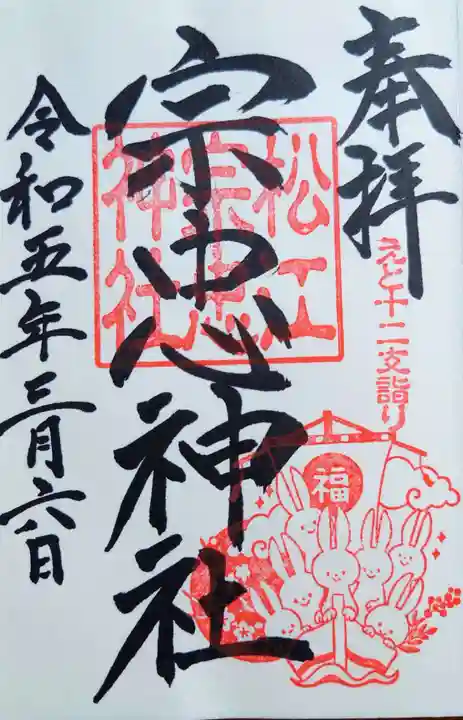 奉拝
えと十二支詣り
福
松江
宗忠
神社
宗忠神社
令和五年三月六日